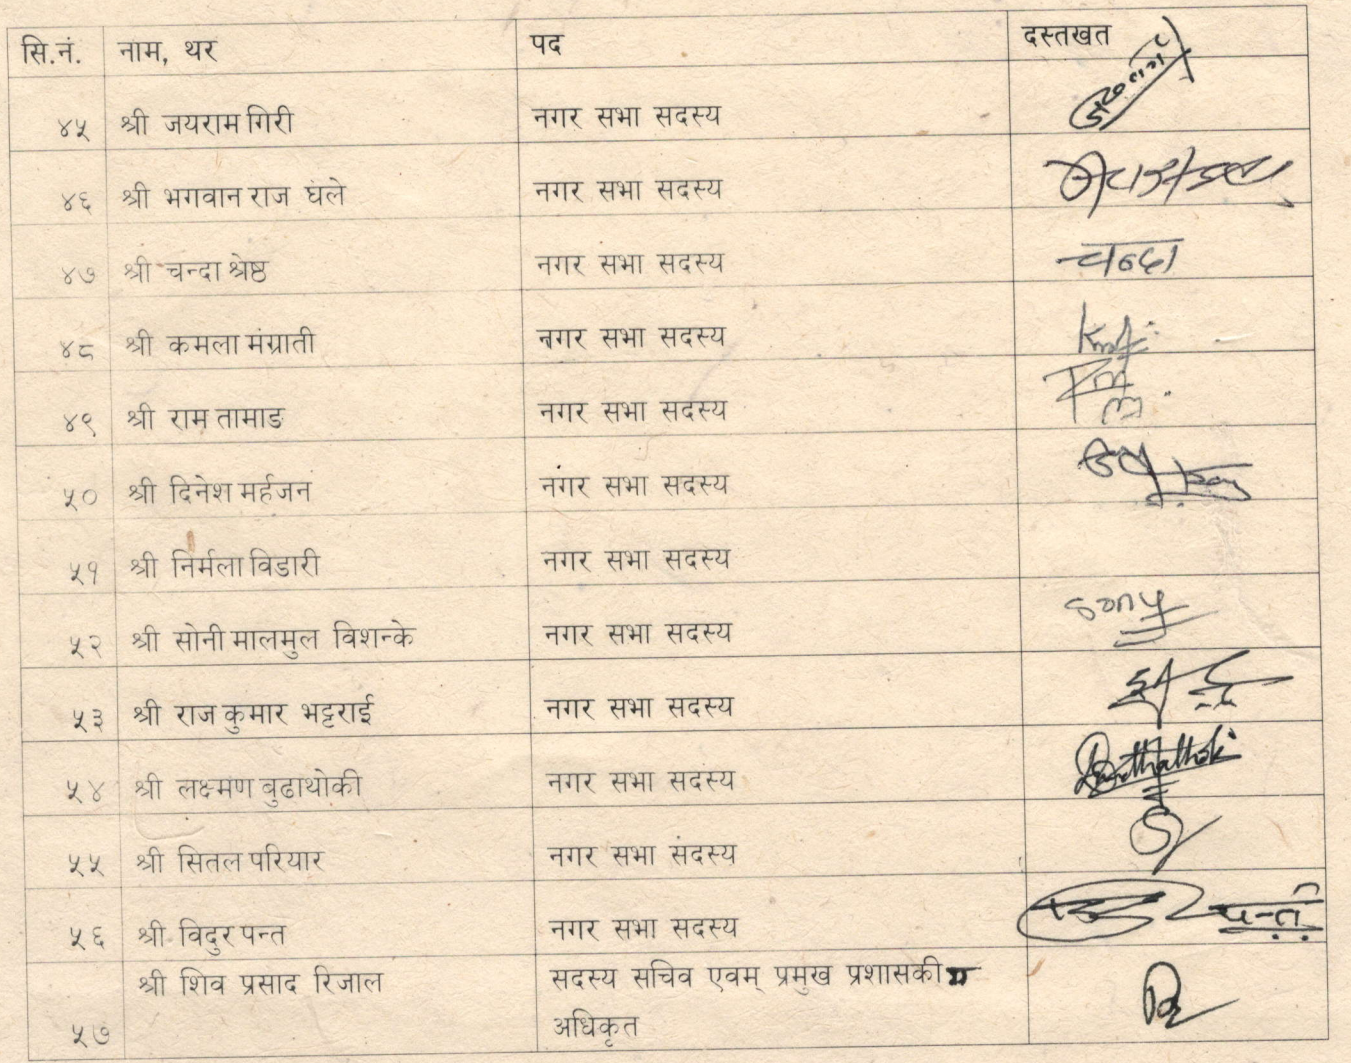 सि.नं. नाम, थर पद दस्तखत
४५ श्री जयराम गिरी नगर सभा सदस्य
४६ श्री भगवान राज घले नगर सभा सदस्य
४७ श्री चन्दा श्रेष्ठ नगर सभा सदस्य चन्दा
४८ श्री कमला मंग्राती नगर सभा सदस्य
४९ श्री राम तामाङ नगर सभा सदस्य
५० श्री दिनेश मर्हजन नगर सभा सदस्य
५१ श्री निर्मला विडारी नगर सभा सदस्य
५२ श्री सोनी मालमुल विशन्के नगर सभा सदस्य Sony
५३ श्री राज कुमार भट्टराई नगर सभा सदस्य
५४ श्री लक्ष्मण बुढाथोकी नगर सभा सदस्य
५५ श्री सितल परियार नगर सभा सदस्य
५६ श्री विदुर पन्त नगर सभा सदस्य पन्त
श्री शिव प्रसाद रिजाल सदस्य सचिव एवम् प्रमुख प्रशासकीय
५७ अधिकृत